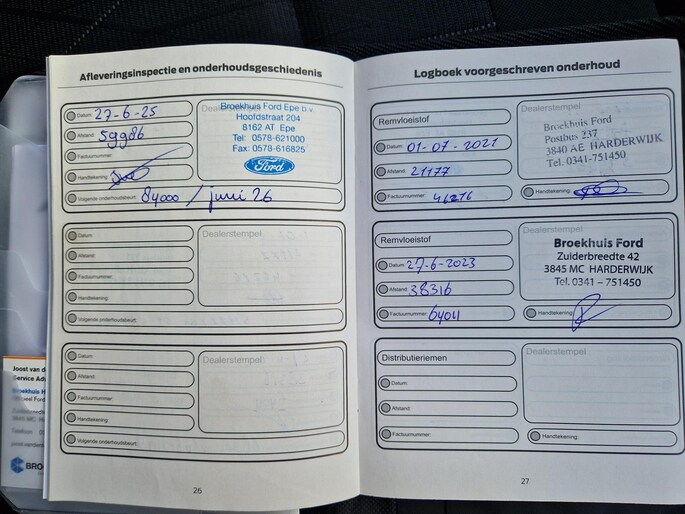 Afleveringsinspectie en onderhoudsgeschiedenis
Datum: 27-6-25
Afstand: 59986
Factuurnummer:
Handtekening:
Volgende onderhoudsbeurt: 84000 / juni 26
Dealerstempel
Broekhuis Ford Epe b.v.
Hoofdstraat 204
8162 AT Epe
Tel: 0578-621000
Fax: 0578-616825
Ford
Datum:
Afstand:
Factuurnummer:
Handtekening:
Volgende onderhoudsbeurt:
Dealerstempel
Datum:
Afstand:
Factuurnummer:
Handtekening:
Volgende onderhoudsbeurt:
Dealerstempel:
26
Joost van d
Service Ad
BRO
Logboek voorgeschreven onderhoud
Remvloeistof
Datum: 01-07-2021
Afstand: 21177
Factuurnummer: 46216
Dealerstempel
Broekhuis Ford
Postbus 237
3840 AE HARDERWIJK
Tel. 0341-751450
Handtekening:
Remvloeistof
Datum: 27-6-2023
Afstand: 38316
Factuurnummer: 64011
Broekhuis Ford
Zuiderbreedte 42
3845 MC HARDERWIJK
Tel. 0341 – 751450
Handtekening:
Distributieriemen
Datum:
Afstand:
Factuurnummer:
Dealerstempel
Handtekening:
27